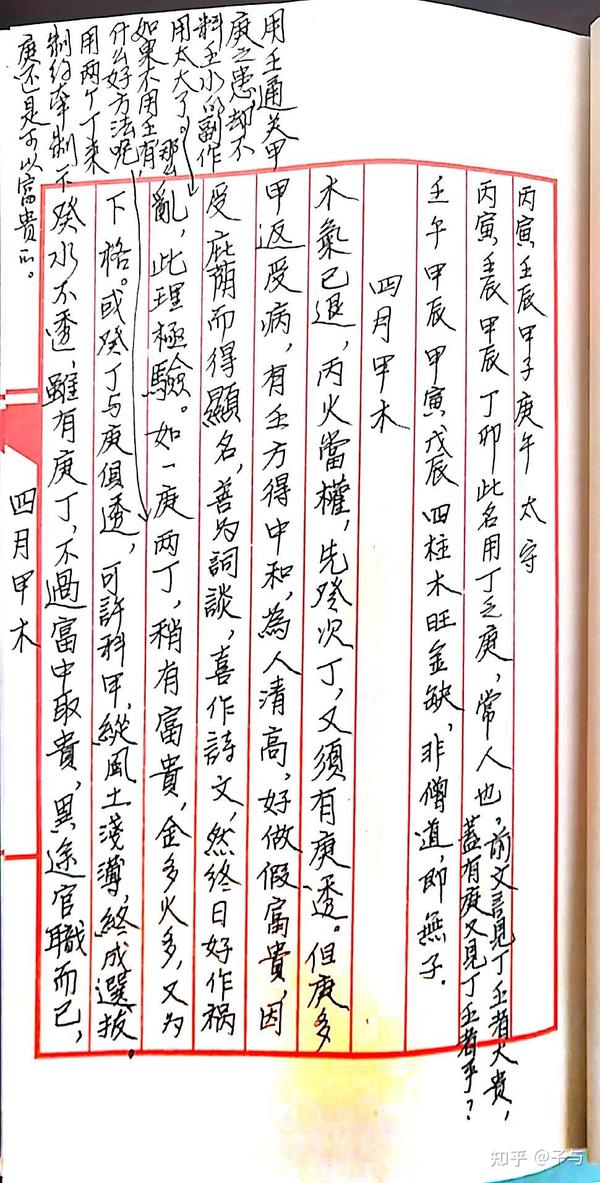 丙寅壬辰甲子庚午 太守
丙寅壬辰甲辰丁卯此名用丁乏庚，常人也，前文言見丁壬者大貴，
蓋有庚又見丁壬者乎？
壬午甲辰甲寅戊辰四柱木旺金缺，非僧道，即無子.
四月甲木
木氣已退，丙火當權，先癸次丁，又須有庚透。但庚多
甲返受病，有壬方得中和，為人清高，好做假富貴，因
受庇蔭而得顯名，善為詞談，喜作詩文，然終日好作禍
亂，此理極驗。如一庚两丁，稍有富貴，金多火多，又为
下格。或癸丁与庚俱透，可許科甲，縱風土淺薄，終成選拔。
癸水不透，雖有庚丁，不過富中取貴，異途官職而已，
四月甲木
用壬通关甲
庚之患，却不
料壬水的副作
用太大了。那么
如果不用壬有
什么好方法呢
用两个丁来
制约牵制下
庚还是可以富貴的。
知乎 @子与